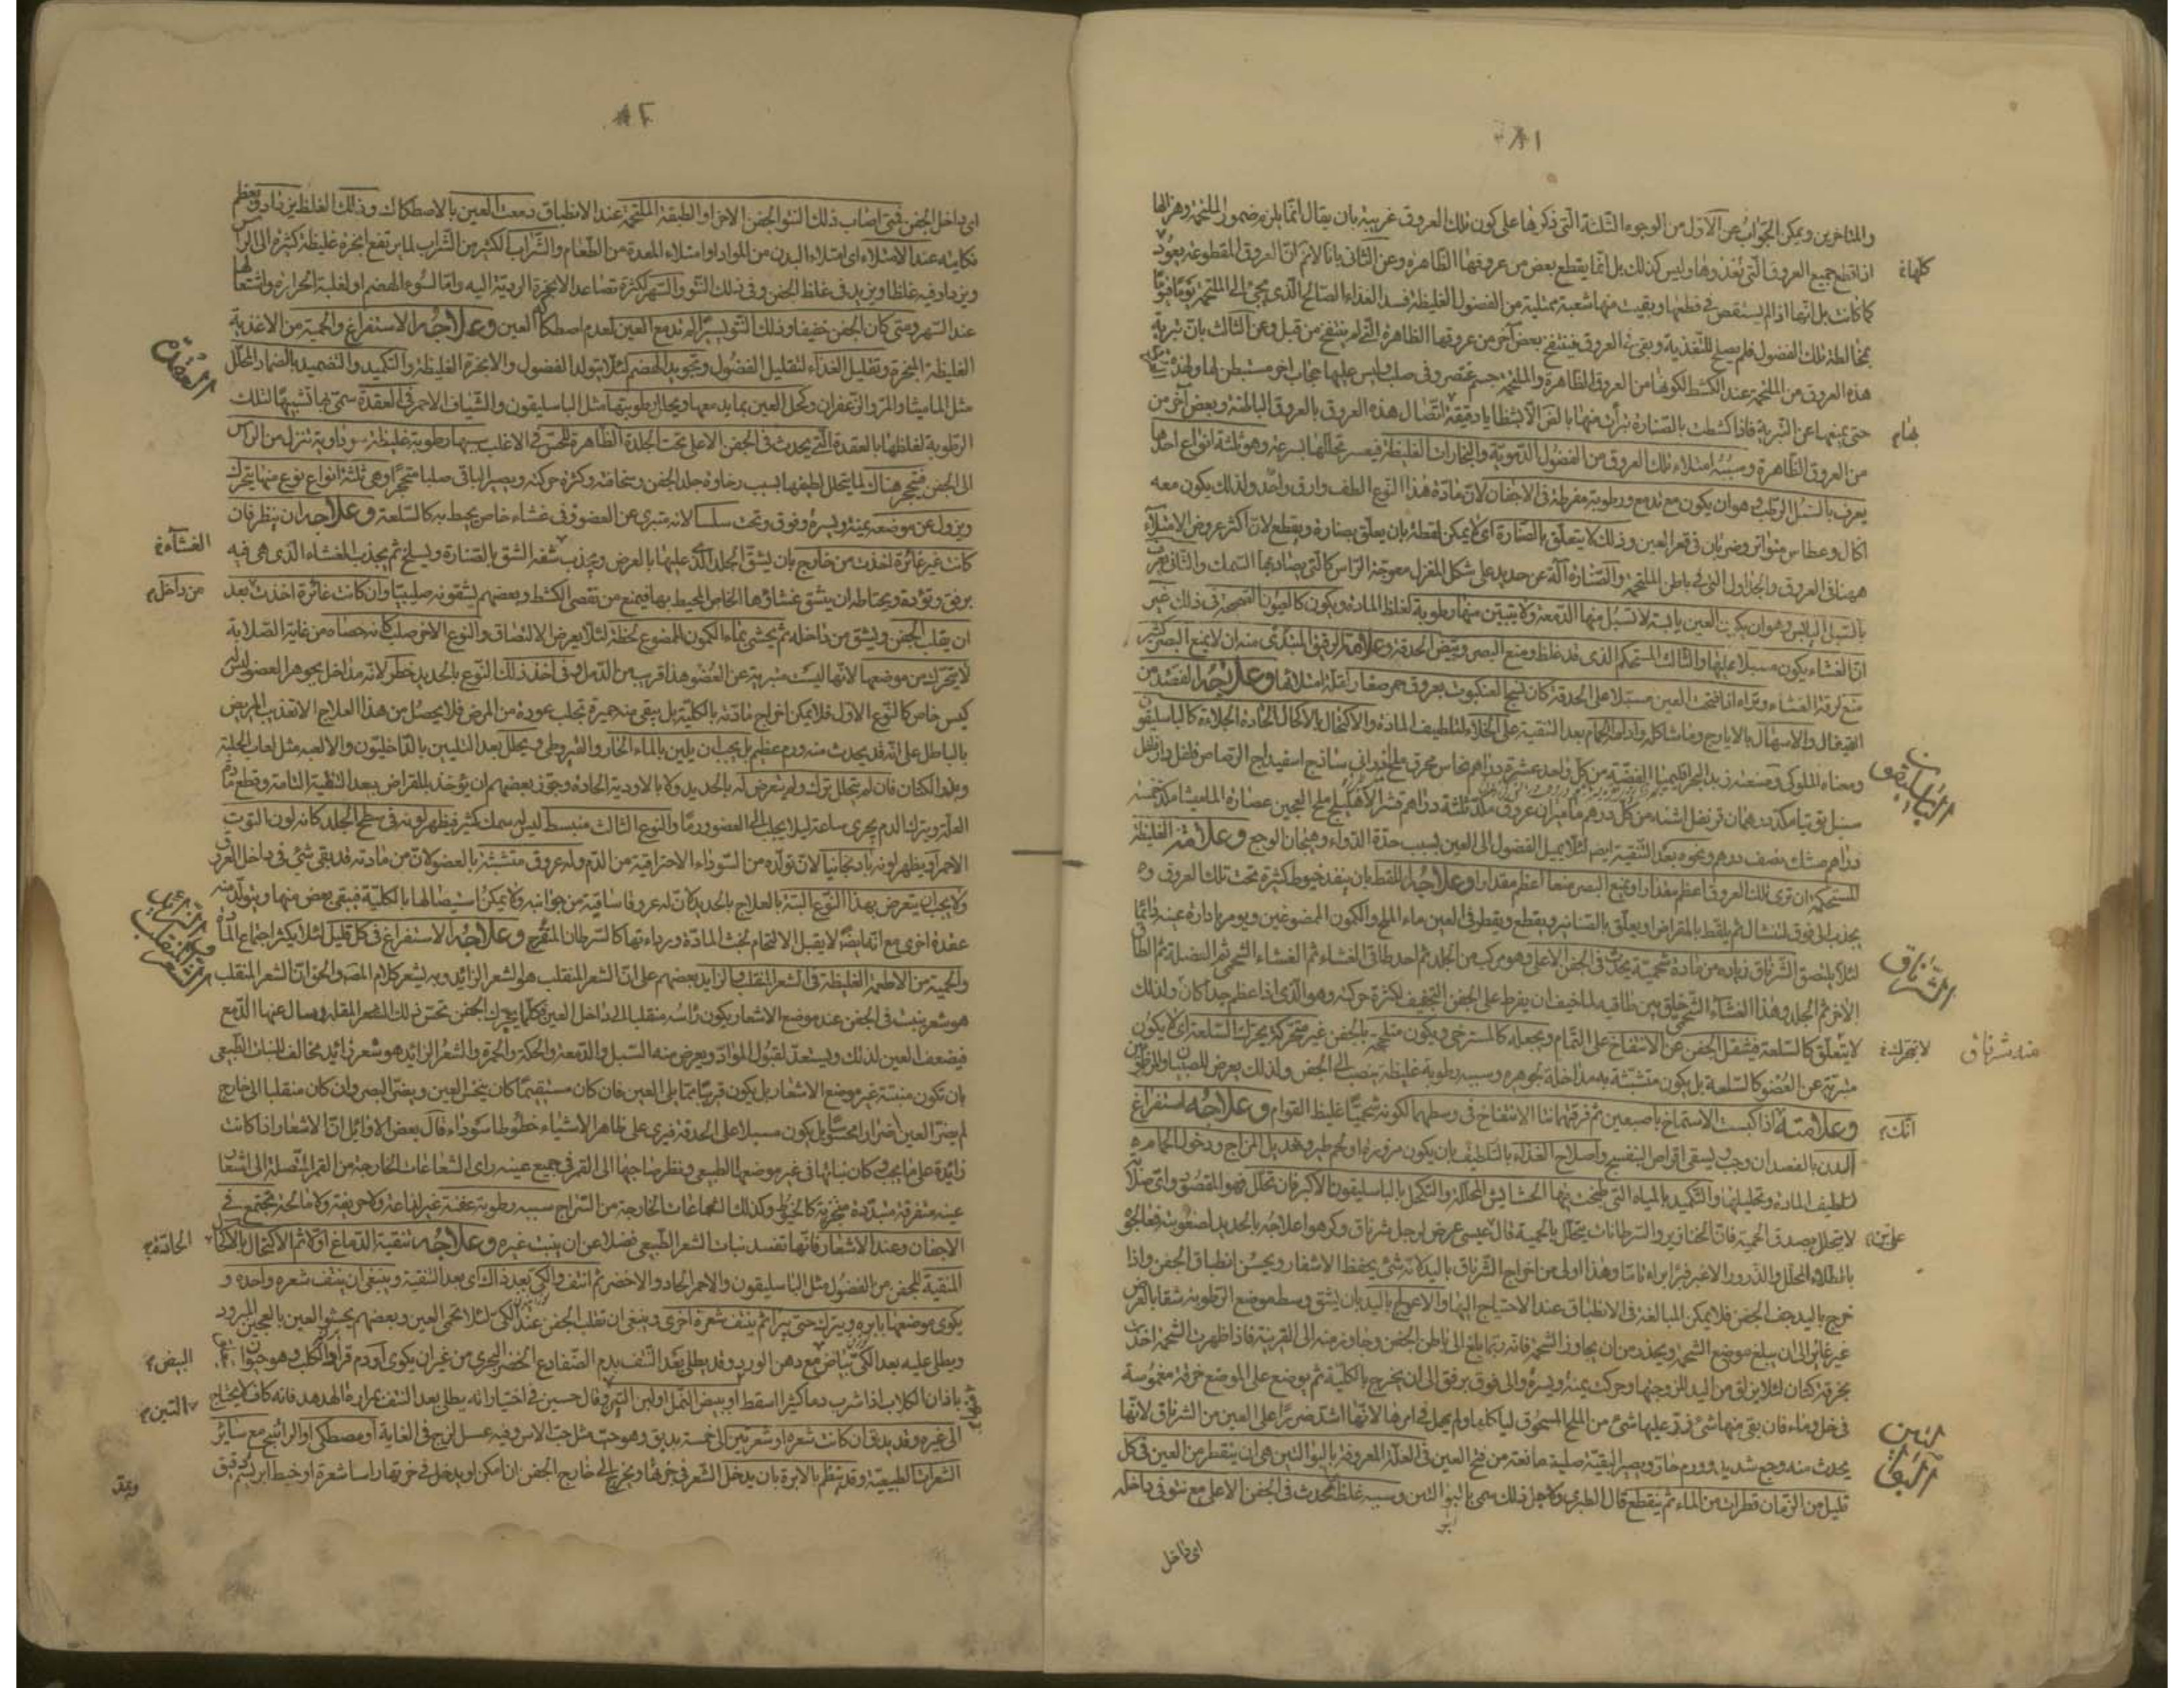 ٨١
والمتاخرين ويمكن الجواب عن الاول من الوجوه الثلثة التى ذكرها على كون تلك العروق غريبة بان يقال انما يلزم ضمور الملتحمة وهزالها
اذا قطع جميع العروق التى تغذوها وليس كذلك بل انما يقطع بعض من عروقها الظاهرة وعن الثانى بانا لا نم ان العروق المقطوعة يعود
كلها
كما كانت بل انها اذا لم يستقص فى قطعها وبقيت منها شعبة ممتلية من الفضول الغليظة فسد الغذاء الصالح الذى يجئ الى الملتحمة يوما فيوما
بمخالطة تلك الفضول فلم يصلح للتغذية وبقى فى العروق فينتفخ بعض آخر من عروقها الظاهرة التى لم ينتفخ من قبل وعن الثالث بان تبرية
هذه العروق من الملتحمة عند الكشط لكونها من العروق الظاهرة والملتحمة جسم غضروفى صلب وليس عليها حجاب اخر مستبطن لها ولهذه
حتى يمنعها عن التبرية فاذا كشطت بالصنارة تبرأت منها بالقى الا بشظايا دقيقة لاتصال هذه العروق بالعروق الباطنة وبعض آخر من
من العروق الظاهرة وسببه امتلاء تلك العروق من الفضول الدموية والبخارات الغليظة فيعسر تحللها بسرعة وهو ثلثة انواع احدها
يعرف بالسبل الرطب وهو ان يكون مع تدمع ورطوبة مفرطة فى الاجفان لان مادة هذا النوع الطف وارق واحد ولذلك يكون معه
اكال وعطاس متواتر وضربان فى قعر العين وذلك لا يتعلق بالصنارة اى لا يمكن لقطه بان يعلق بصنارة ويقطع لان اكثر عروض الامتلاء
ههنا فى العروق والجداول التى فى باطن الملتحمة والصنارة آلة عن حديد على شكل المغزل معوجة الراس كالتى يصاد بها السمك والثانى يعرف
بالسبل اليابس وهو ان يكون العين يابسة لا تسيل منها الدمعة ولا يتبين منها رطوبة لغلظ المادة ويكون كالعيون الصحيحة فى ذلك غير
ان الغشاء يكون مسبلا عليها والثالث المستحكم الذى قد غلظ ومنع البصر وبيض الحدقة وعلامة الرقيق المبتدى منه ان لا يمنع البصر كثير
منع لرقة الغشاء وتراه اذا فتحت العين مسبلا على الحدقة كان نسج العنكبوت بعروق حمر صغار لقلة امتلائها وعلاجه الفصد من
القيفال والاسهال بالايارج وما شاكله وادامة الحمام بعد التنقية على الخلاء لتلطيف المادة والاكتحال بالاكحال الحادة الجلاءة كالباسليقون
الباسليقون
ومعناه الملوكى وصنعته زبد البحر اقليميا الفضة من كل واحد عشرة دراهم نحاس محرق ملح اندرانى ساذج اسفيداج الرصاص فلفل دار فلفل
دراهم مسك نصف درهم ونحوه بعد التنقية ايضا لئلا يميل الفضول الى العين بسبب حدة الدواء وهيجان الوجع وعلامة الغليظة
المستحكم ان ترى تلك العروق اعظم مقدارا ويمنع البصر منعا اعظم مقدارا وعلاجه اللقط بان ينفذ خيوط كثيرة تحت تلك العروق و
يجذب الى فوق لتنشال ثم يلقط بالمقراض او يعلق بالصنانير ويقطع ويقطر فى العين ماء الملح والكمون الممضوغين ويومر بادارة عينه دائما
لئلا يلتصق الشرناق زيادة من مادة شحمية يحدث فى الجفن الاعلى وهو مركب من الجلد ثم احد طاقى الغشاء ثم الغشاء الشحمى ثم العضلة ثم الطاق
الشرناق
الاخر ثم الجلد وهذا الغشاء الشحمى خلق بين طاقيه لما خيف ان يفرط على الجفن التجفيف لكثرة حركته وهو الذى اذا عظم جدا كان ولذلك
لا يتعلق كالسلعة فيثقل الجفن عن الانفتاح على التمام ويجعله كالمسترخى ويكون ملتحمة بالجفن غير متحركة تحرك السلعة اى لا يكون
لا يتحرك
شرناق
متبرية عن العضو كالسلعة بل يكون متشبثة به مداخلة لجوهره وسببه رطوبة غليظة ينصب الى الجفن ولذلك يعرض للصبيان والمرطوبين
وعلامته اذا كبست الانتفاخ باصبعين ثم فرقتهما نتا الانتفاخ فى وسطهما لكونه شحميا غليظ القوام وعلاجه استفراغ
انك
البدن بالفصد ان وجب ويسقى اقراص البنفسج واصلاح الغذاء بالتلطيف بان يكون مزورة او لحم طير وتعديل المزاج ودخول الحمام مرة
لتلطيف المادة وتحليلها والتكميد بالمياه التى طبخت فيها الحشايش المحللة والتكحل بالباسليقون الاكبر فان تحلل فهو المقصود واى صلابة
لا يتحلل بصدق الحمية فان الخنازير والسرطانات يتحلل بالحمية قال عيسى عرض لرجل شرناق وكرهوا علاجه بالحديد لصعوبته فعالجوه
بالطلاء المحلل والذرور الاغبر فبرأ براء تاما وهذا اولى من اخراج الشرناق باليد لانه شئ يحفظ الاشفار ويحسن انطباق الجفن واذا
خرج باليد جف الجفن فلا يمكن المبالغة فى الانطباق عند الاحتياج اليها والا عولج باليد بان يشق وسط موضع الرطوبة شقا بالعرض
غير غائر الى ان يبلغ موضع الشحمة ويحذر من ان يجاوز الشحمة فانه ربما بلغ الى باطن الجفن وجاوز منه الى القرنية فاذا ظهرت الشحمة اخذت
بخرقة كتان لئلا يزلق من اليد للزوجتها وحركت يمنة ويسرة والى فوق برفق الى ان يخرج بالكلية ثم يوضع على الموضع خرقة مغموسة
فى خل وماء فان بقى منها شئ ذر عليها شئ من الملح المسحوق لياكلها ولم يهمل فى امرها لانها اشد ضررا على العين من الشرناق لانها
يحدث منه وجع شديد وورم حار ويصير البقية صلبة مانعة من فتح العين فى العلة المعروفة بالبوالتين هى ان يتقطر من العين فى كل
قليل من الزمان قطرات من الماء ثم ينقطع قال الطبرى ولاجل ذلك سمى بالبوالتين وسببه غلظ يحدث فى الجفن الاعلى مع نتو فى داخله
اى داخل
٨٢
اى داخل الجفن فمتى اصاب ذلك النتو الجفن الاخر او الطبقة الملتحمة عند الانطباق دمعت العين بالاصطكاك وذلك الغلظ يزداد ويعظم
نكايته عند الامتلاء اى امتلاء البدن من المواد او امتلاء المعدة من الطعام والشراب الكثير من الشراب لما يرتفع ابخرة غليظة كثيرة الى الراس
ويزداد فيه غلظا ويزيد فى غلظ الجفن وفى ذلك النتو والسهر لكثرة تصاعد الابخرة الردية اليه واما لسوء الهضم او لغلبة الحرارة واشتعالها
عند السهر ومتى كان الجفن خفيفا وذلك النتو يسيرا لم تدمع العين لعدم اصطكاك العين وعلاجه الاستفراغ والحمية من الاغذية
الغليظة المبخرة وتقليل الغذاء لتقليل الفضول وتجويد الهضم لئلا يتولد الفضول والابخرة الغليظة والتكميد والتضميد بالضماد المحلل
مثل الماميثا والمر والزعفران وكحل العين بما يدمعها ويحلل رطوبتها مثل الباسليقون والشياف الاحمر فى العقدة سمى بها تشبيها لتلك
العقدة
الرطوبة لغلظها بالعقدة التى يحدث فى الجفن الاعلى تحت الجلدة الظاهرة للحس فى الاغلب سببها رطوبة غليظة سوداوية تنزل من الراس
الى الجفن فيتحجر هناك لما يتحلل لطيفها بسبب رخاوة جلد الجفن وسخافته وكثرة حركته ويصير الباقى صلبا متحجرا وهى ثلثة انواع نوع منها يتحرك
ويزول عن موضعه يمنة ويسرة وفوق وتحت سلسا لانه متبرى عن العضو فى غشاء خاص يحيط به كالسلعة وعلاجه ان ينظر فان
كانت غير غائرة اخذت من خارج بان يشق الجلد الذى عليها بالعرض ويجذب شفة الشق بالصنارة ويسلخ ثم يجذب الغشاء الذى هى فيه
الغشاء
برفق وتؤدة ويحتاط ان لا يشق غشاؤها الخاص المحيط بها فيمنع من تقصى الكشط وبعضهم يشقونه صليبيا وان كانت غائرة اخذت بعد
من داخل
ان يقلب الجفن ويشق من داخله ثم يحشى بماء الكمون الممضوغ لحظة لئلا يعرض الالتصاق والنوع الاخر صلب كانه حصاة من غاية الصلابة
لا يتحرك من موضعها لانها ليست متبرية عن العضو هذا قريب من الدمل وفى اخذ ذلك النوع بالحديد خطر لانه مداخل بجوهر العضو ليس له
كيس خاص كالنوع الاول فلا يمكن اخراج مادته بالكلية بل يبقى منه خميرة تجلب عودة من المرض فلا يحصل من هذا العلاج الا تعذيب المريض
بالباطل على انه قد يحدث منه ورم عظيم بل يجب ان يلين بالماء الحار والقيروطى ويحلل بعد التليين بالداخليون والالعبة مثل لعاب الحلبة
وبزر الكتان فان لم يتحلل ترك ولم يتعرض له بالحديد ولا بالادوية الحادة وجوز بعضهم ان يؤخذ بالمقراض بعد التنقية التامة وقطع مادة
العلة ويترك الدم يجرى ساعة لئلا يجلب الى العضو ورما والنوع الثالث منبسط ليس له سمك كثير فيظهر لونه فى سطح الجلد كانه لون التوت
الاحمر او يظهر لونه باذنجانيا لان تولده من السوداء الاحتراقية من الدم وله عروق متشبثة بالعضو لان من مادته قد بقى شئ فى داخل العروق
ولا يجب ان يتعرض بهذا النوع البتة بالعلاج بالحديد لان له عروقا ساقية من جوانبه ولا يمكن استيصالها بالكلية فيبقى بعض منها ويتولد منه
عقدة اخرى مع انها ايضا لا يقبل الالتحام لخبث المادة ورداءتها كالسرطان المتقرح وعلاجه الاستفراغ فى كل قليل لئلا يكثر اجتماع المادة
والحمية من الاطعمة الغليظة فى الشعر المنقلب والزايد بعضهم على ان الشعر المنقلب هو الشعر الزائد وبه يشعر كلام المص والحق ان الشعر المنقلب
هو شعر ينبت فى الجفن عند موضع الاشفار يكون رأسه منقلبا الى داخل العين فكلما يتحرك الجفن تخس ذلك الشعر المقلة وسال عنها الدمع
فيضعف العين لذلك ويستعد لقبول المواد ويعرض منه السبل والدمعة والحكة والحمرة والشعر الزائد هو شعر زائد مخالف للنبات الطبيعى
بان تكون منبته غير موضع الاشفار بل يكون قريبا مما يلى العين فان كان مستقيما كان ينخس العين ويضر البصر وان كان منقلبا الى خارج
لم يضر العين اضرارا محسوسا بل يكون مسبلا على الحدقة فيرى على ظاهر الاشياء خطوطا سوداء قال بعض الاوائل ان الاشفار اذا كانت
زائدة على ما يجب وكان نباتها فى غير موضعها الطبيعى ونظر صاحبها الى القمر فى جميع عينيه راى الشعاعات الخارجة من القمر المتصلة الى اشفار
عينه متفرقة متبددة متجزية كالخيوط وكذلك الشعاعات الخارجة من السراج سببه رطوبة عفنة غير لذاعة ولا حريفة ولا مالحة تجتمع فى
الاجفان وعند الاشفار فانها تفسد نبات الشعر الطبيعى فضلا عن ان ينبت غيره وعلاجه تنقية الدماغ اولا ثم الاكتحال بالاكحال
الحادة
المنقية للجفن من الفضول مثل الباسليقون والاحمر الحاد والاخضر ثم انتف والكى بعد ذاك اى بعد التنقية وينبغى ان ينتف شعرة واحدة و
يكوى موضعها بابرة ويترك حتى يبرا ثم ينتف شعرة اخرى وينبغى ان تقلب الجفن عند الكى لئلا تحمى العين وبعضهم يحشو العين بالعجين المبرود
ويطلى عليه بعد الكى بياض مع دهن الورد وقد يطلى بعد النتف بدم الضفادع الخضر البحرى من غير ان يكوى او دم قراد الكلب وهو حيوان
البيض
باذان الكلاب اذا شرب دما كثيرا سقط او ببيض النمل او لبن التين وقال حسين فى اختياراته يطلى بعد النتف بمرارة الهدهد فانه كاف لا يحتاج
التين
الى غيره وقد يدبق ان كانت شعرة او شعرتين الى خمسة بدبق وهو حب مثل حب الاس وفيه عسل لزج فى الغاية او مصطكى او الراتينج مع سائر
الشعرات الطبيعية وقد ينظم بالابرة بان يدخل الشعر فى خرقها ويخرج الى خارج الجفن ان امكن او يدخل فى خرتها راسا شعرة او خيط ابريسم دقيق